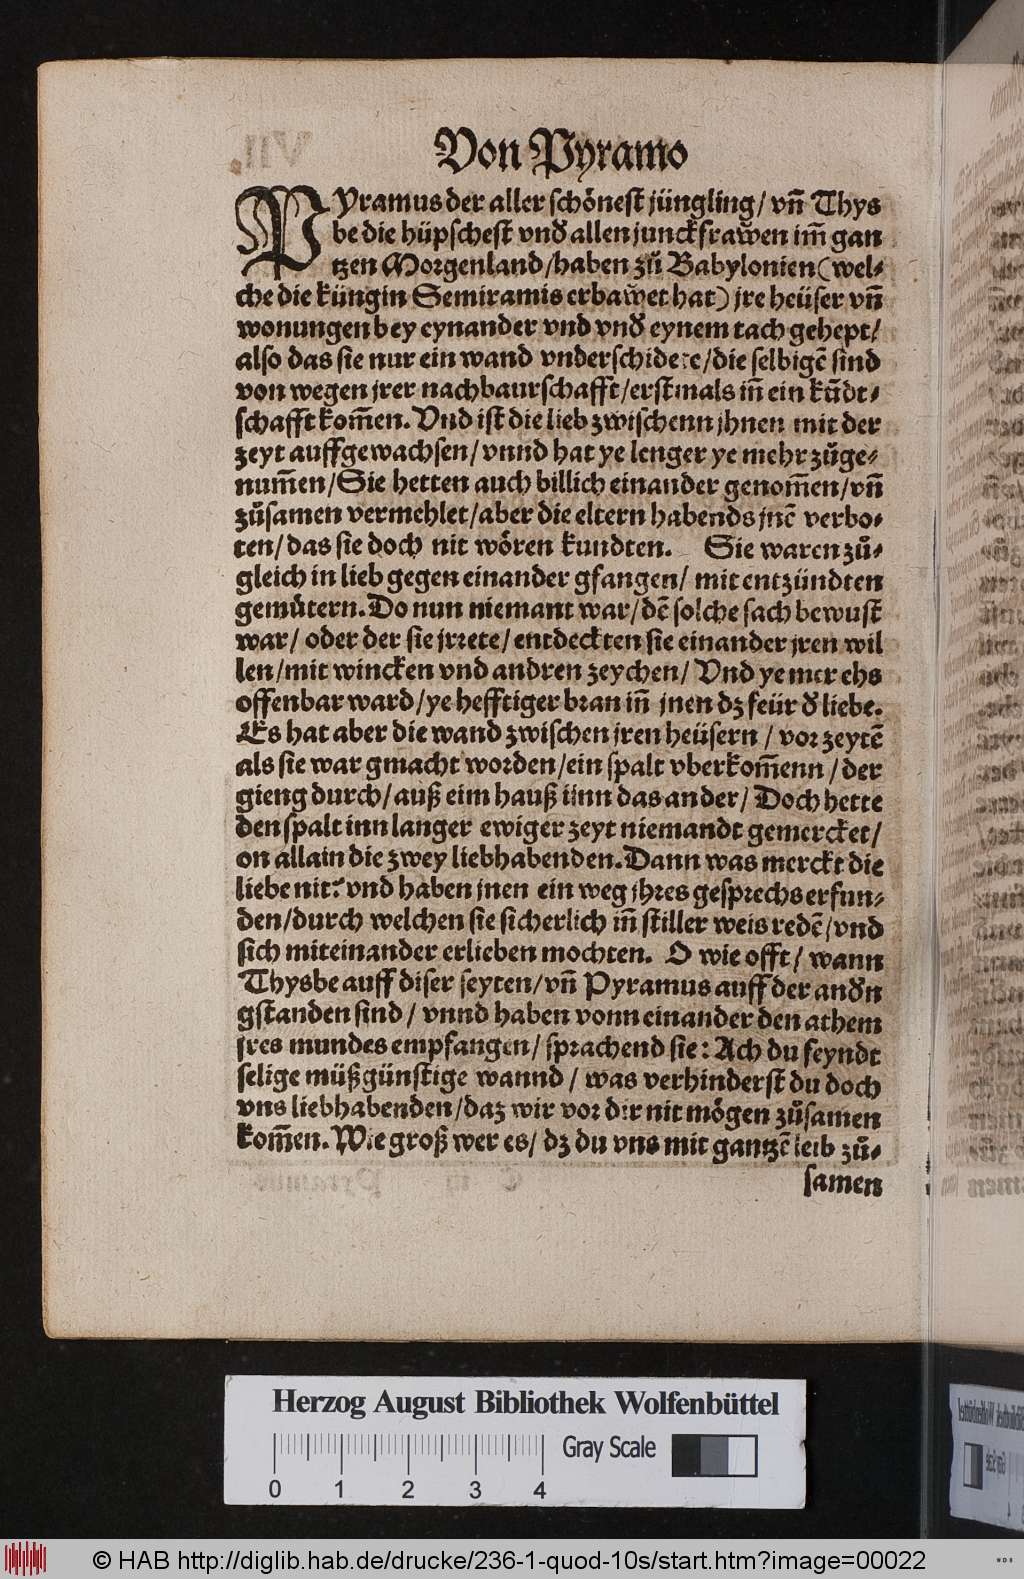 Von Pyramo
PYramus der aller schönest jüngling/ vñ Thys
be die hüpschest vnd̕ allen junckfrawen im̃ gan
tzen Morgenland/haben zů Babylonien (wel-
che die küngin Semiramis erbawet hat) jre heüser vñ
wonungen bey eynander vnd vnd̕ eynem tach gehept/
also das sie nur ein wand vnderschidete/die selbigẽ sind
von wegen jrer nachbaurschafft/erstmals iñ ein kũdt-
schafft kom̃en. Vnd ist die lieb zwischenn jhnen mit der
zeyt auffgewachsen/vnnd hat ye lenger ye mehr zůge-
num̃en/Sie hetten auch billich einander genom̃en/vñ
zůsamen vermehlet/aber die eltern habends jnẽ verbo-
ten/das sie doch nit wören kundten. Sie waren zů-
gleich in lieb gegen einander gfangen/ mit entzündten
gemütern. Do nun niemant war/dẽ solche sach bewust
war/ oder der sie jrrete/entdeckten sie einander jren wil
len/mit wincken vnd andren zeychen/ Vnd ye mer ehs
offenbar ward/ye hefftiger bran iñ jnen dz feür d̕ liebe.
Es hat aber die wand zwischen jren heüsern / vor zeytẽ
als sie war gmacht worden/ein spalt vberkom̃enn /der
gieng durch/auß eim hauß iinn das ander/ Doch hette
den spalt inn langer ewiger zeyt niemandt gemercket/
on allain die zwey liebhabenden. Dann was merckt die
liebe nit? vnd haben jnen ein weg jhres gesprechs erfun-
den/durch welchen sie sicherlich iñ stiller weis redẽ/vnd
sich miteinander erlieben mochten. O wie offt/ wann
Thysbe auff diser seyten/vñ Pyramus auff der and̕n
gstanden sind / vnnd haben vonn einander den athem
jres mundes empfangen/ sprachend sie: Ach du feyndt
selige müßgünstige wannd / was verhinderst du doch
vns liebhabenden/daz wir vor dir nit mögen zůsamen
kom̃en. Wie groß wer es/ dz du vns mit gantzẽ leib zů-
samen
Herzog August Bibliothek Wolfenbüttel
Gray Scale
0 1 2 3 4
© HAB http://diglib.hab.de/drucke/236-1-quod-10s/start.htm?image=00022